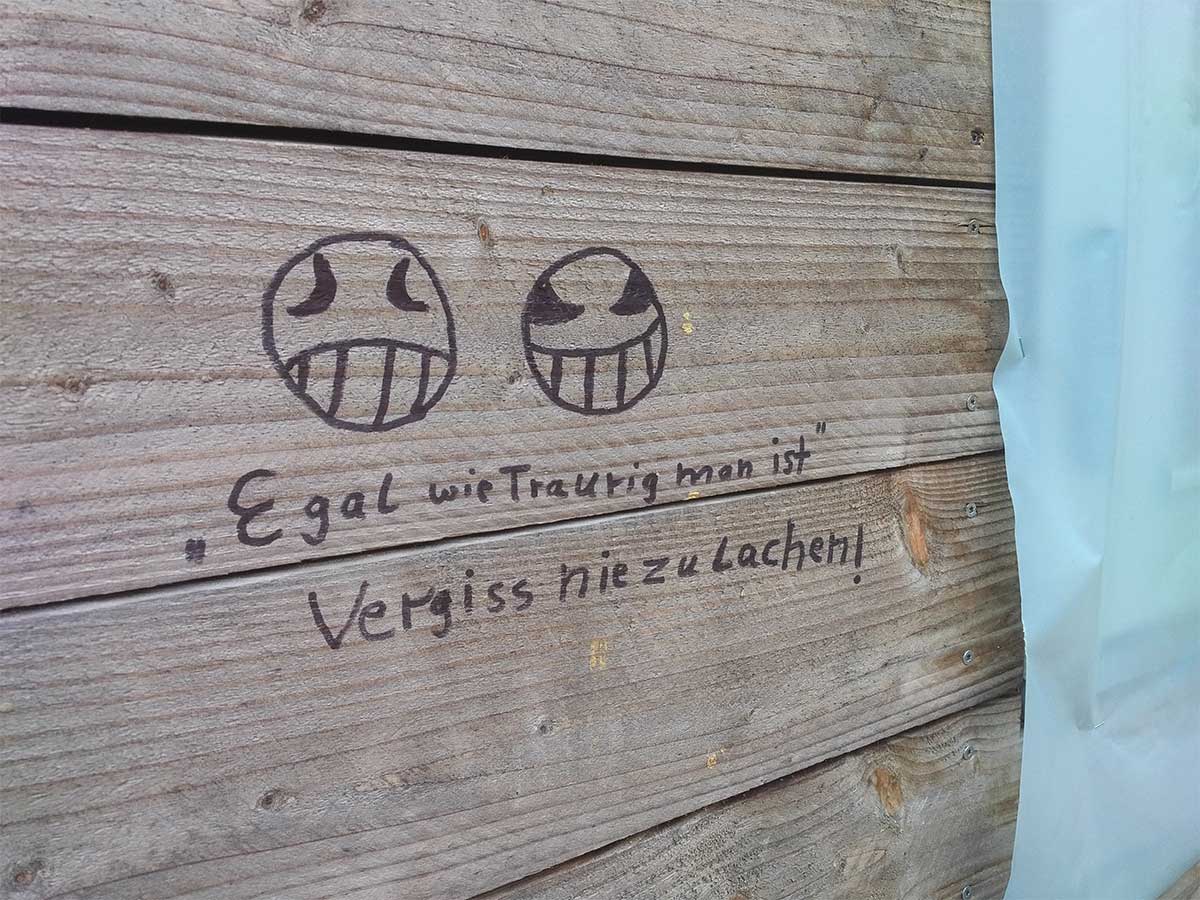 „Egal wie Traurig man ist"
Vergiss nie zu Lachen!